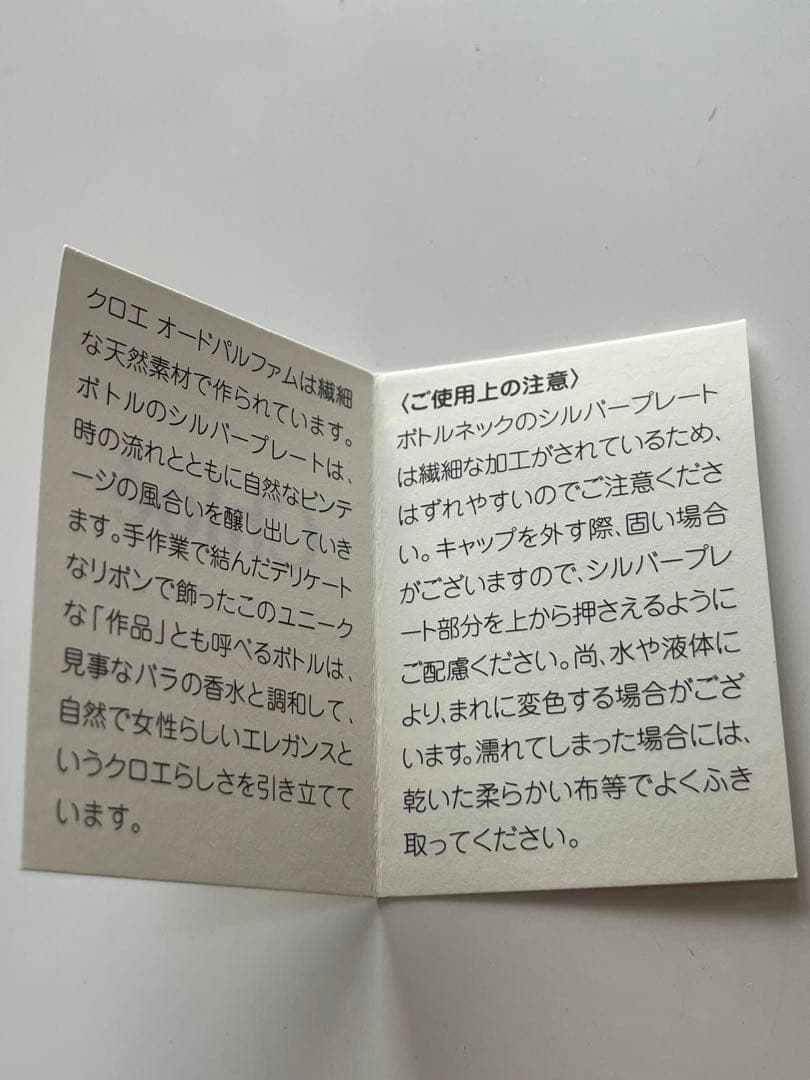 クロエ オードパルファムは繊細
な天然素材で作られています。
ボトルのシルバープレートは、
時の流れとともに自然なビンテ
ージの風合いを醸し出していき
ます。手作業で結んだデリケート
なリボンで飾ったこのユニーク
な「作品」とも呼べるボトルは、
見事なバラの香水と調和して、
自然で女性らしいエレガンスと
いうクロエらしさを引き立てて
います。
〈ご使用上の注意〉
ボトルネックのシルバープレート
は繊細な加工がされているため、
はずれやすいのでご注意くださ
い。キャップを外す際、固い場合
がございますので、シルバープレ
ート部分を上から押さえるように
ご配慮ください。尚、水や液体に
より、まれに変色する場合がござ
います。濡れてしまった場合には、
乾いた柔らかい布等でよくふき
取ってください。